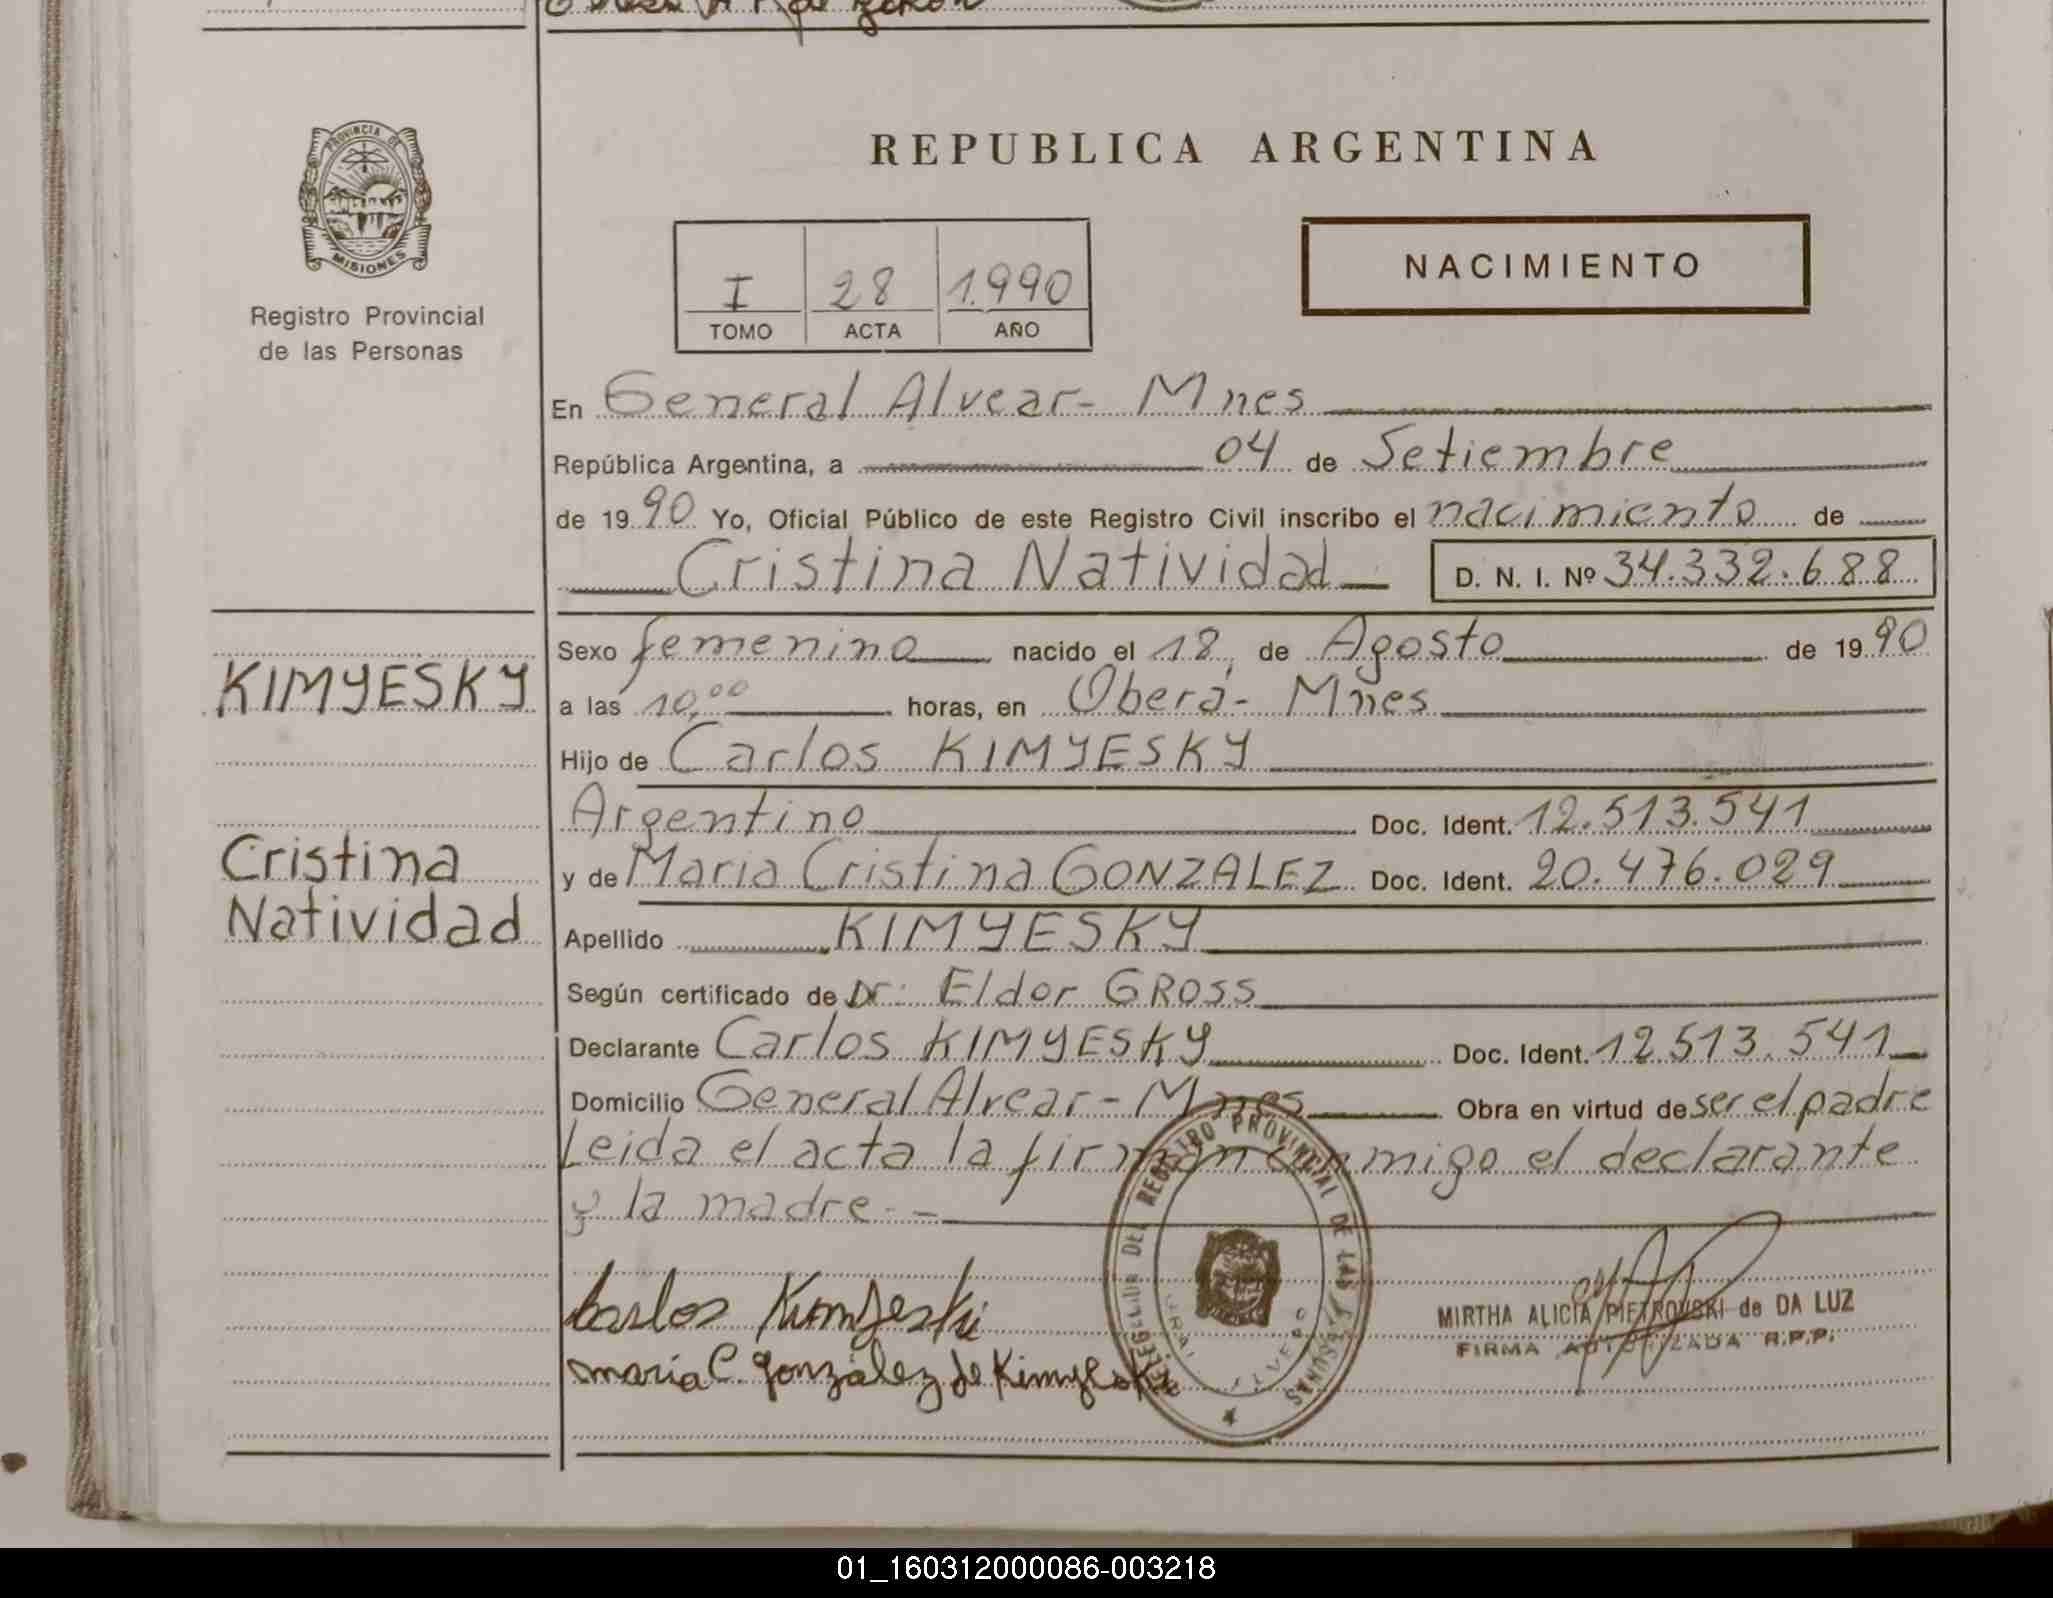 PROVINCIA DE
MISIONES
Registro Provincial
de las Personas
REPUBLICA ARGENTINA
I 28 1.990
TOMO ACTA AÑO
NACIMIENTO
En General Alvear - Mnes
República Argentina, a 04 de Setiembre
de 1990 Yo, Oficial Público de este Registro Civil inscribo el nacimiento de
Cristina Natividad D. N. I. Nº 34.332.688
KIMYESKY
Cristina
Natividad
Sexo femenino nacido el 18, de Agosto de 1990
a las 10,00 horas, en Oberá - Mnes
Hijo de Carlos KIMYESKY
Argentino Doc. Ident. 12.513.541
y de Maria Cristina GONZALEZ Doc. Ident. 20.476.029
Apellido KIMYESKY
Según certificado de Dr: Eldor GROSS
Declarante Carlos KIMYESKY Doc. Ident. 12.513.541
Domicilio General Alvear - Mnes Obra en virtud de ser el padre
Leida el acta la firman conmigo el declarante
y la madre.-
Carlos Kimyeski
maría C. gonzález de Kimyeski
DEL REGISTRO PROVINCIAL DE LAS PERSONAS
MIRTHA ALICIA PIETROVSKI de DA LUZ
FIRMA AUTORIZADA R.P.P.
01_160312000086-003218